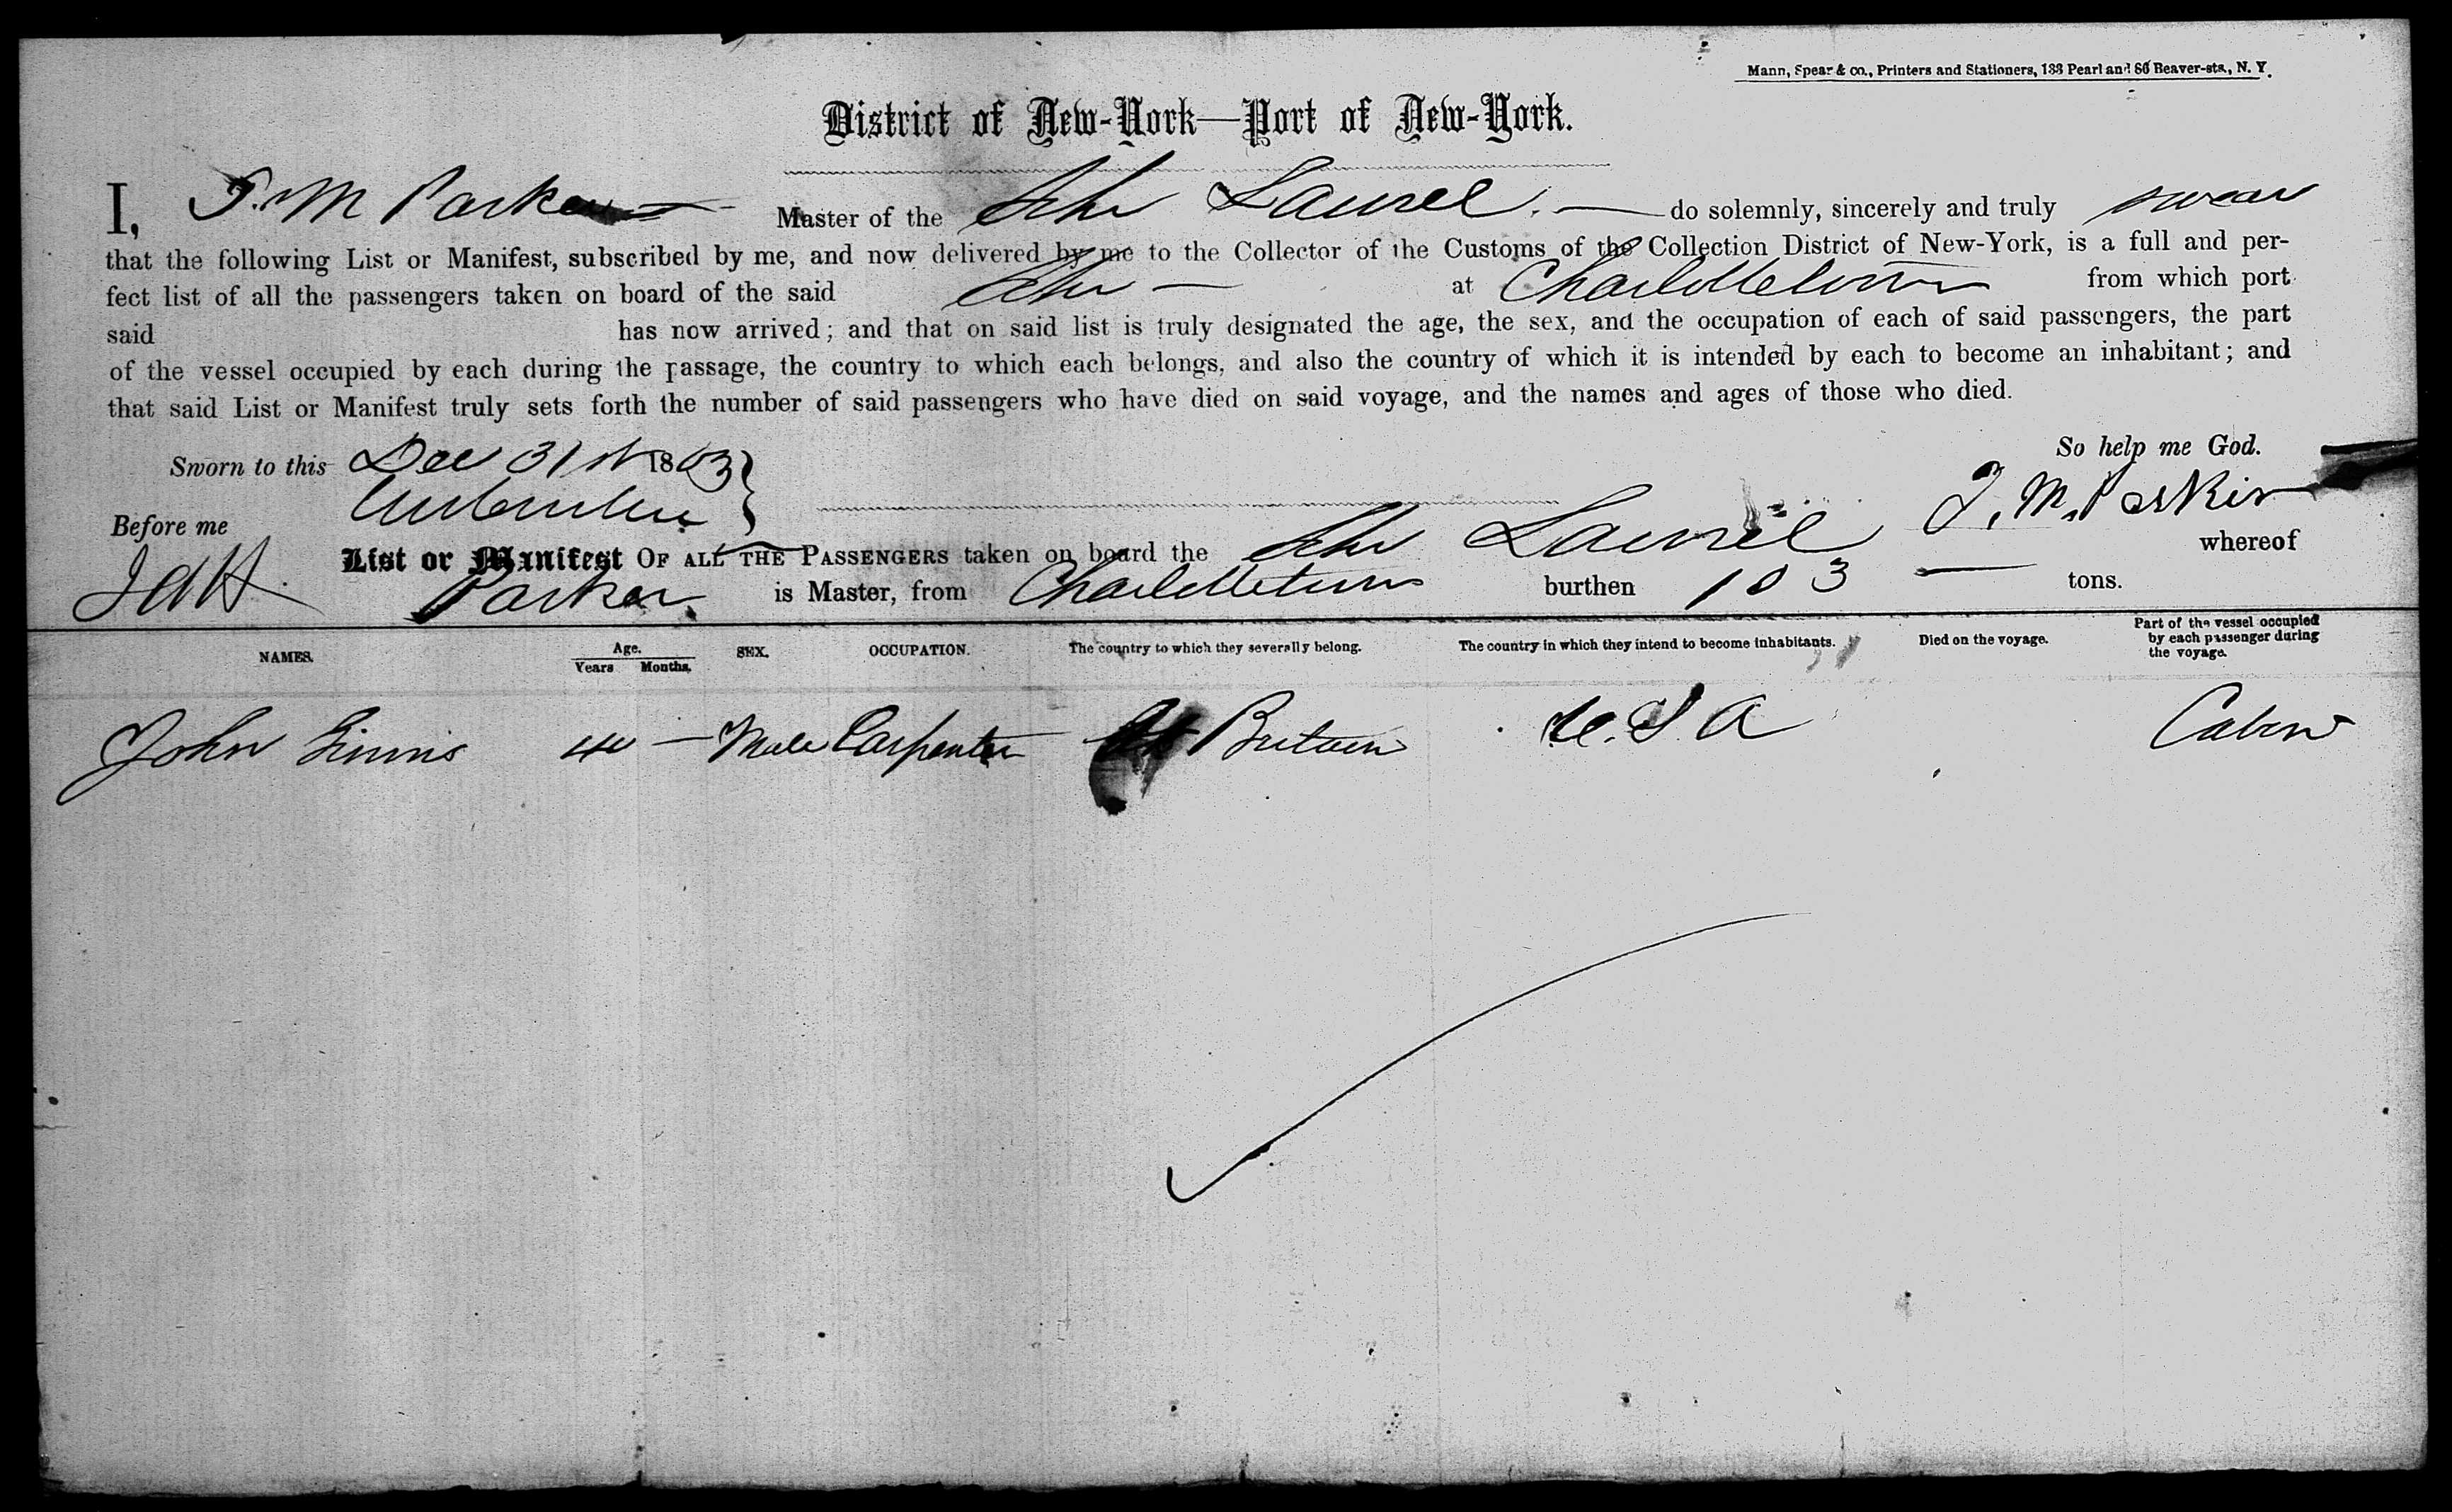 Mann, Spear & co., Printers and Stationers, 133 Pearl and 86 Beaver-sts., N. Y.
District of New-York—Port of New-York.
I, T. M Parker Master of the Schr Laurel. — do solemnly, sincerely and truly swear
that the following List or Manifest, subscribed by me, and now delivered by me to the Collector of the Customs of the Collection District of New-York, is a full and per-
fect list of all the passengers taken on board of the said Schr — at Charlottetown from which port
said has now arrived; and that on said list is truly designated the age, the sex, and the occupation of each of said passengers, the part
of the vessel occupied by each during the passage, the country to which each belongs, and also the country of which it is intended by each to become an inhabitant; and
that said List or Manifest truly sets forth the number of said passengers who have died on said voyage, and the names and ages of those who died.
So help me God.
Sworn to this Dec 31st 1863
T. M. Parker
Before me
List or Manifest OF ALL THE PASSENGERS taken on board the Schr Laurel whereof
Parker is Master, from Charlottetown burthen 103 — tons.
NAMES. Age. Years Months. SEX. OCCUPATION. The country to which they severally belong. The country in which they intend to become inhabitants. Died on the voyage. Part of the vessel occupied by each passenger during the voyage.
John — Male Carpenter Gt Britain U. S. A Cabin